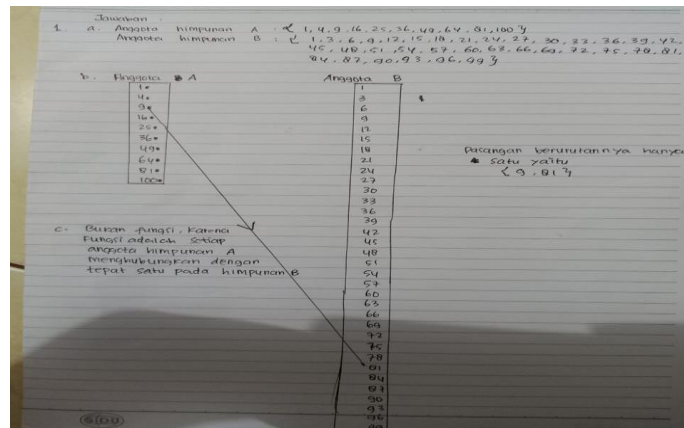 Jawaban :
1. a. Anggota himpunan A : { 1, 4, 9, 16, 25, 36, 49, 64, 81, 100 }
Anggota himpunan B : { 1, 3, 6, 9, 12, 15, 18, 21, 24, 27, 30, 33, 36, 39, 42,
45, 48, 51, 54, 57, 60, 63, 66, 69, 72, 75, 78, 81,
84, 87, 90, 93, 96, 99 }
b. Anggota A
1
4
9
16
25
36
49
64
81
100
Anggota B
1
3
6
9
12
15
18
21
24
27
30
33
36
39
42
45
48
51
54
57
60
63
66
69
72
75
78
81
84
87
90
93
96
99
Pasangan berurutannya hanya
satu yaitu
{ 9, 81 }
c. Bukan fungsi, karena
Fungsi adalah setiap
anggota himpunan A
menghubungkan dengan
tepat satu pada himpunan B
SIDU